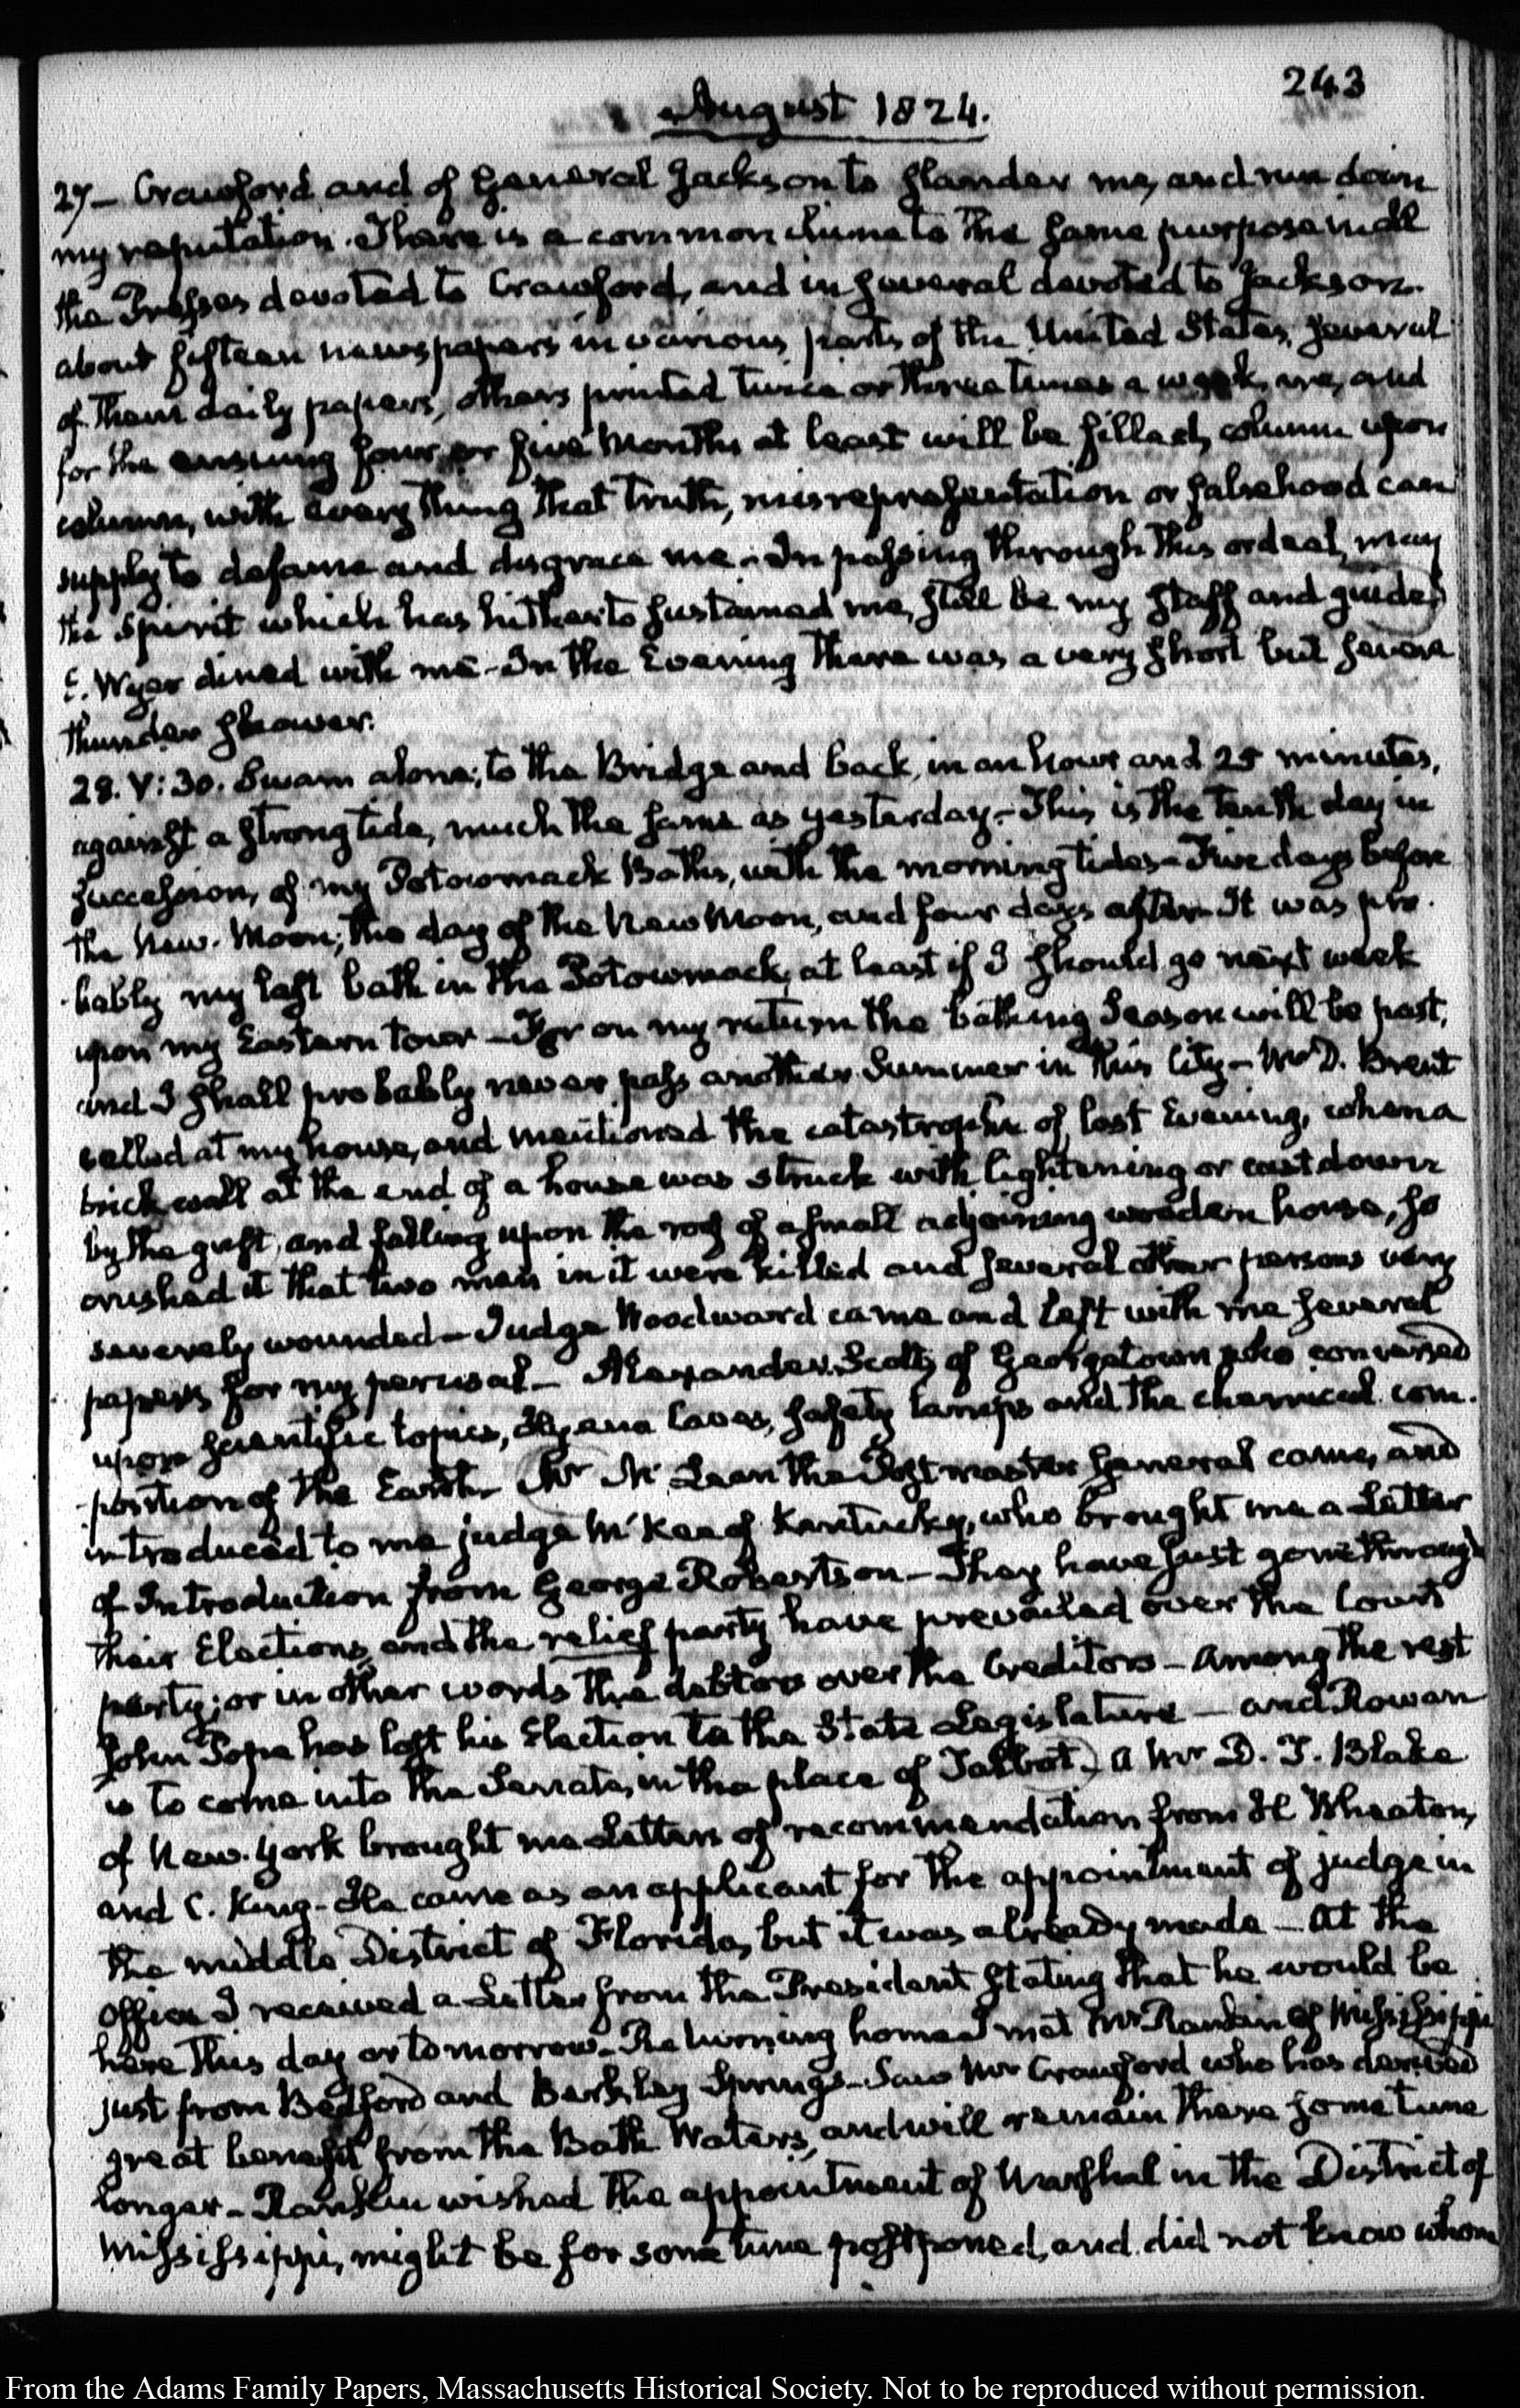 243
August 1824.
27– Crawford and of General Jackson to slander me, and run down
my reputation. There is a common chime to the same purpose in all
the Presses devoted to Crawford, and in several devoted to Jackson.
about fifteen newspapers in various parts of the United States, several
of them daily papers, others printed twice or three times a week, are, and
for the ensuing four or five Months at least will be filled, column upon
column, with every thing that truth, misrepresentation or falsehood can
supply to defame and disgrace me. In passing through this ordeal, may
the Spirit which has hitherto sustained me, still be my staff and guide.
E. Wyer dined with me – In the Evening there was a very short but severe
thunder shower.
28. V:30. Swam alone; to the Bridge and back, in an hour and 25 minutes,
against a strong tide, much the same as yesterday – This is the tenth day in
succession, of my Potowmack Baths, with the morning tides – Five days before
the New-Moon; the day of the New Moon, and four days after – It was pro-
bably my last bath in the Potowmack, at least if I should go next week
upon my Eastern tour – For on my return the bathing Season will be past,
and I shall probably never pass another Summer in this City – Mr D. Brent
called at my house, and mentioned the catastrophe of last Evening, when a
brick wall at the end of a house was struck with lightening or cast down
by the gust, and falling upon the roof of a small adjoining wooden house, so
crushed it that two men in it were killed and several other persons very
severely wounded – Judge Woodward came and left with me several
papers for my perusal – Alexander Scott, of Georgetown who conversed
upon scientific topics, Hyena Caves, safety lamps and the chemical com-
position of the Earth. Mr McLean the Post master General came, and
introduced to me judge McKee of Kentucky, who brought me a Letter
of Introduction from George Robertson – They have just gone through
their Elections, and the relief party have prevailed over the Court
party; or in other words the debtors over the Creditors – Among the rest
John Pope has lost his Election to the State Legislature – and Rowan
is to come into the Senate, in the place of Talbot. A Mr D. T. Blake
of New-York brought me Letters of recommendation from H Wheaton,
and C. King – He came as an applicant for the appointment of judge in
the middle District of Florida, but it was already made – At the
Office I received a Letter from the President stating that he would be
here this day or tomorrow – Returning home I met Mr Rankin of Mississippi
just from Bedford and Berkley Springs – Saw Mr Crawford who has derived
great benefit from the Bath Waters, and will remain there some time
longer – Rankin wished the appointment of Marshal in the District of
Mississippi, might be for some time postponed, and did not know whom
From the Adams Family Papers, Massachusetts Historical Society. Not to be reproduced without permission.